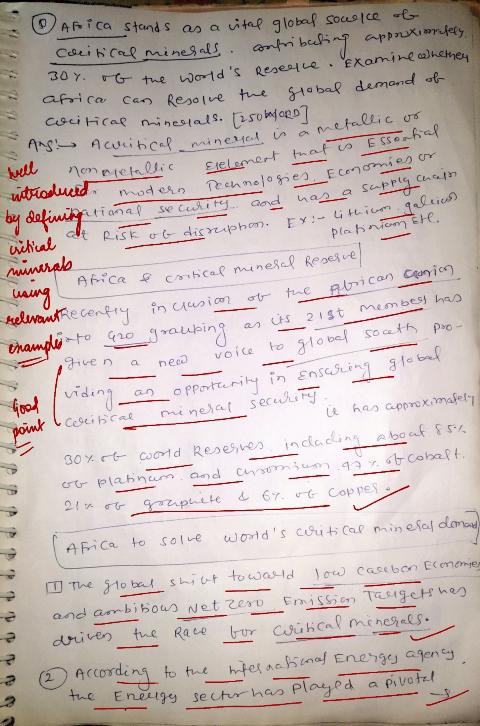 ⑧ Africa stands as a vital global source of
critical minerals. contributing approximately
30% of the world's Reserve. Examine whether
africa can Resolve the global demand of
critical minerals. [250 word]
Ans:→ A critical mineral is a metallic or
non metallic Element that is Essential
modern Technologies, Economies or
national security and has a supply chain
at Risk of disruption. Ex:- Lithium, galium
platinium Etc.
well
introduced
by defining
critical
minerals
using
relevant
examples
Africa & critical mineral Reserve
Recently inclusion of the African Union
into G20 grouping as its 21st member has
given a new voice to global south pro-
viding an opportunity in Ensuring global
critical mineral security.
Good
point
it has approximately
30% of world Reserves including about 85%
of platinum and chromium 47% of cobalt.
21% of graphite & 6% of copper.
Africa to solve world's critical mineral demand
① The global shift toward low carbon Economies
and ambitious Net zero Emission Targets has
driven the Race for critical minerals.
② According to the international Energy agency
the Energy sector has played a pivotal